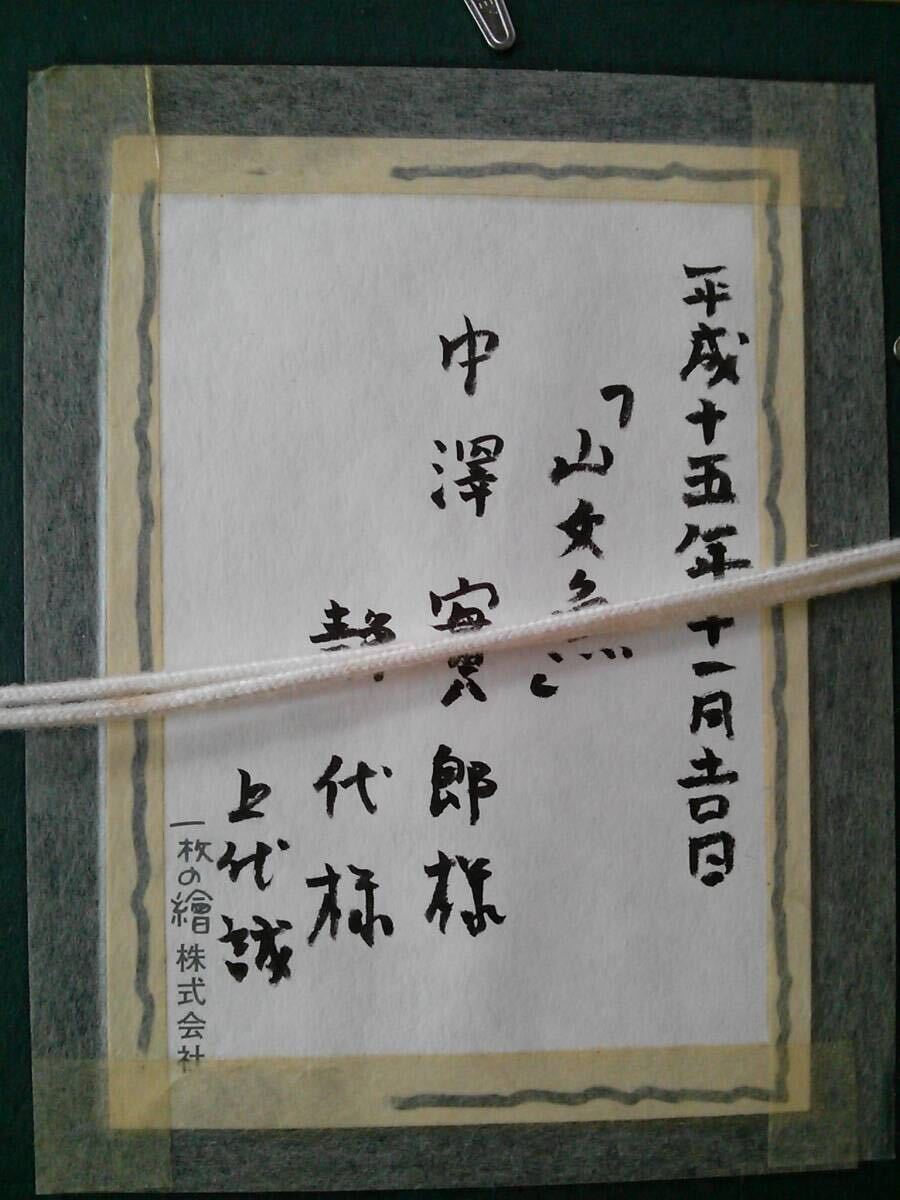 平成十五年十一月吉日
「山女魚」
中澤實郎様
静代様
上代誠
一枚の繪株式会社